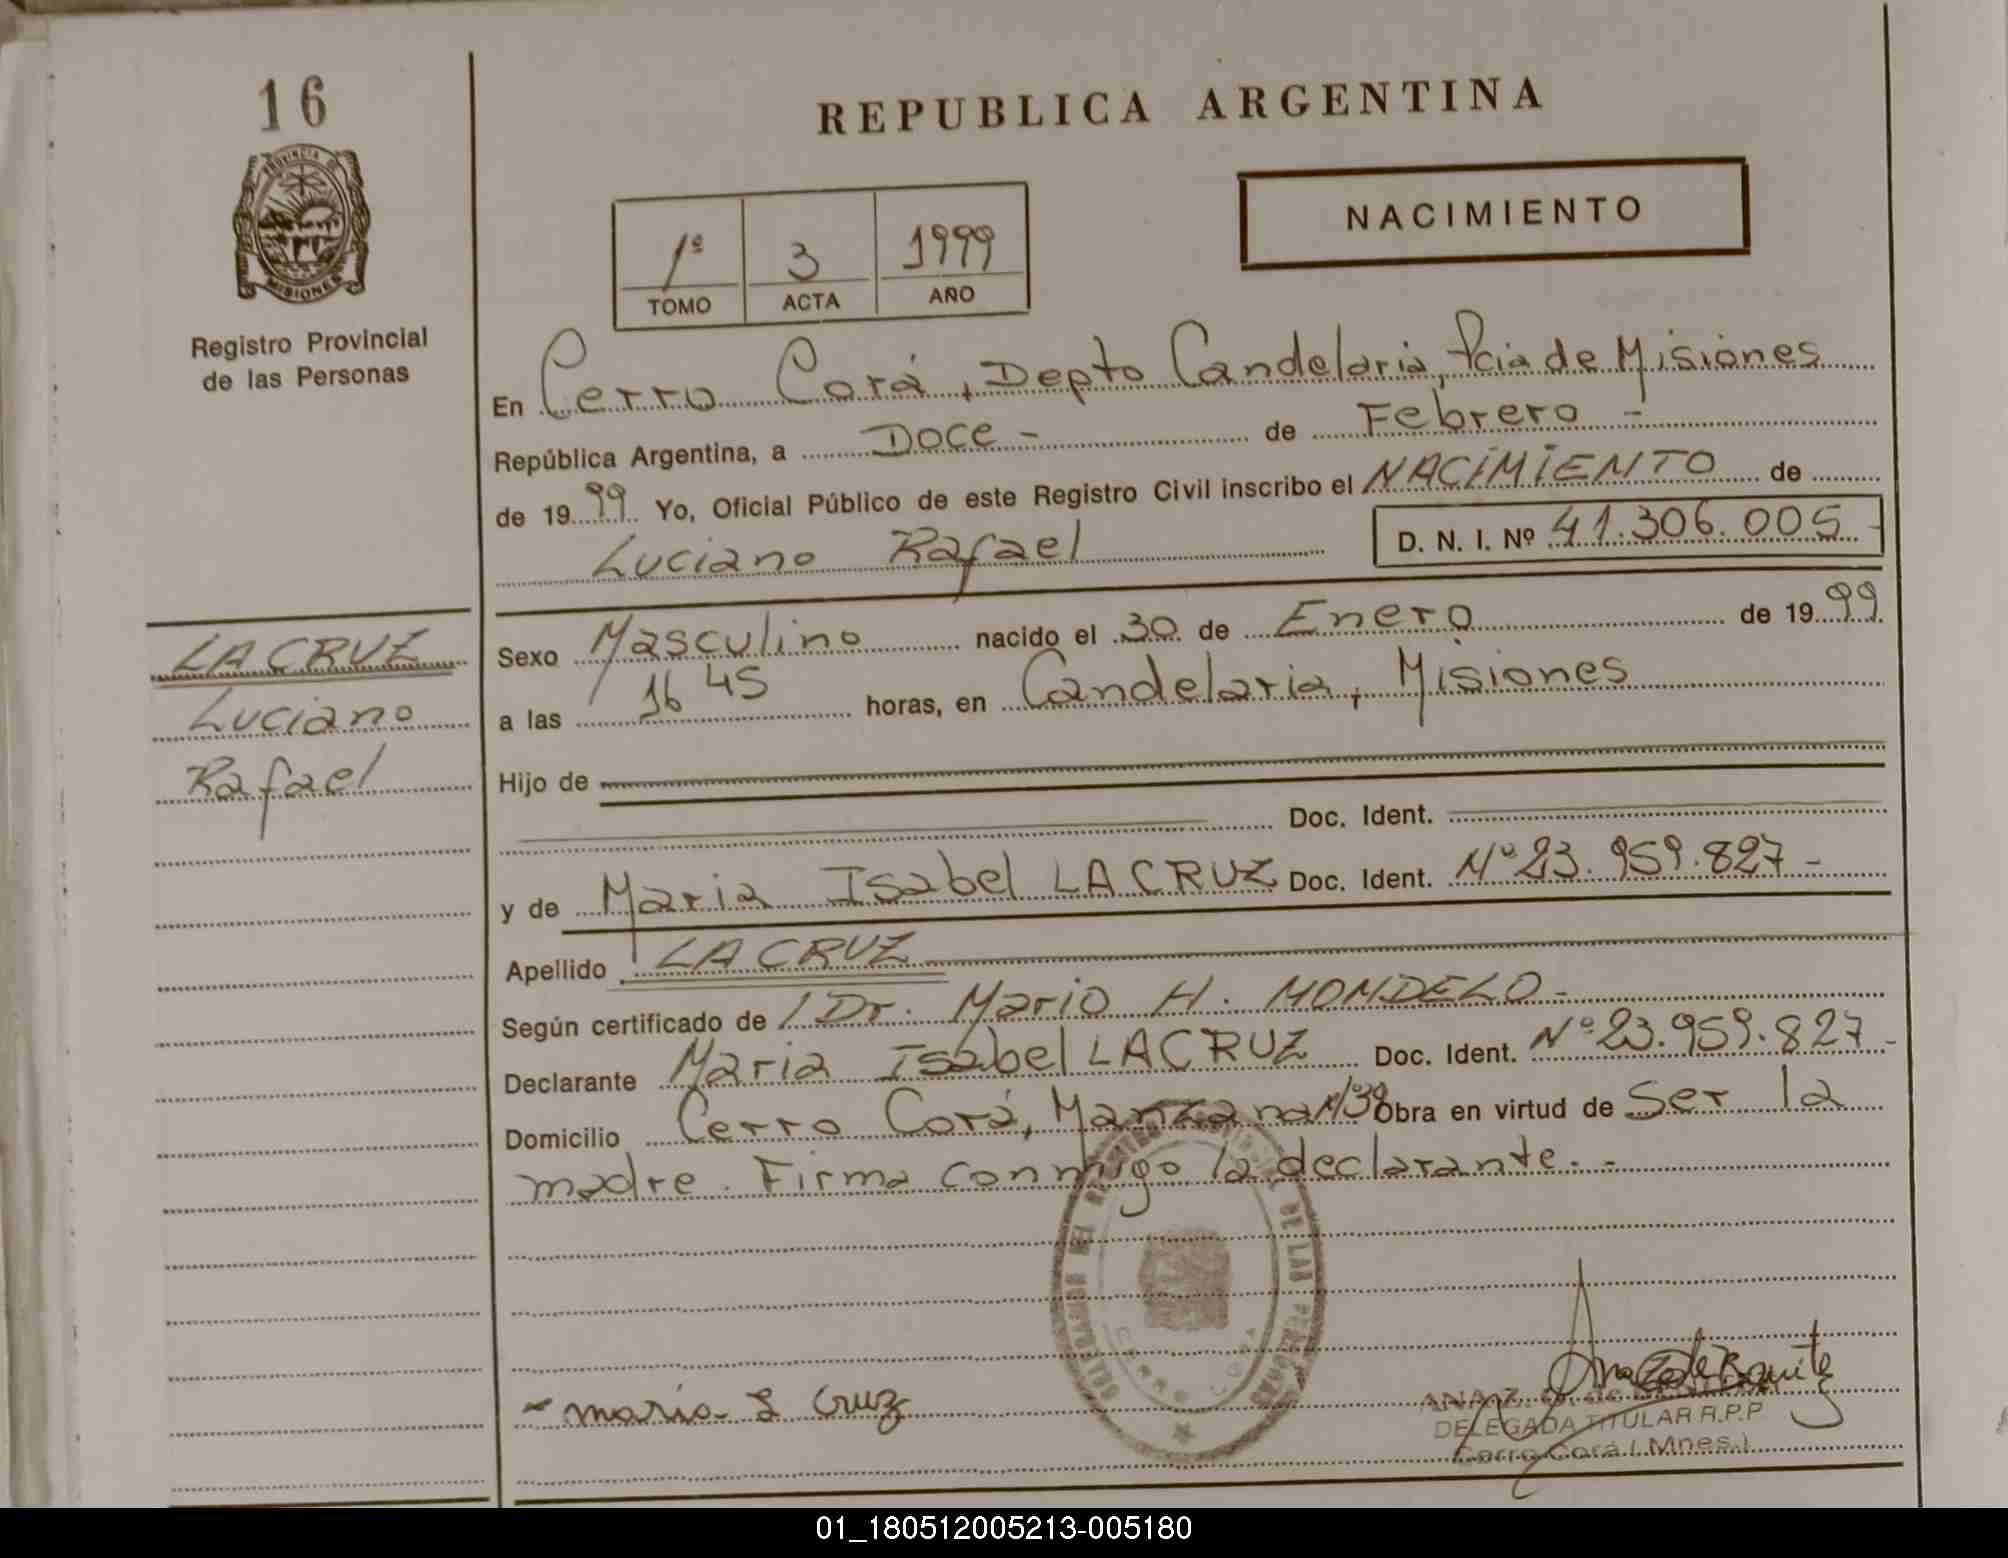 16
REPUBLICA ARGENTINA
PROVINCIA DE
MISIONES
Registro Provincial
de las Personas
1º 3 1999
TOMO ACTA AÑO
NACIMIENTO
En Cerro Corá, Depto Candelaria, Pcia de Misiones
República Argentina, a Doce - de Febrero -
de 1999 Yo, Oficial Público de este Registro Civil inscribo el NACIMIENTO de
Luciano Rafael D. N. I. Nº 41.306.005 -
LA CRUZ
Luciano
Rafael
Sexo Masculino nacido el 30 de Enero de 1999
a las 16 45 horas, en Candelaria, Misiones
Hijo de
Doc. Ident.
y de Maria Isabel LA CRUZ Doc. Ident. Nº 23.959.827 -
Apellido LA CRUZ
Según certificado de Dr. Mario H. MONDELO -
Declarante Maria Isabel LA CRUZ Doc. Ident. Nº 23.959.827 -
Domicilio Cerro Corá, Manzana Nº 39 Obra en virtud de Ser la
madre. Firma conmigo la declarante. -
DE LAS PERSONAS
CERRO CORA
- maria L Cruz
ANA Z. de
DELEGADA TITULAR R.P.P
Cerro Corá (Mnes.)
01_180512005213-005180